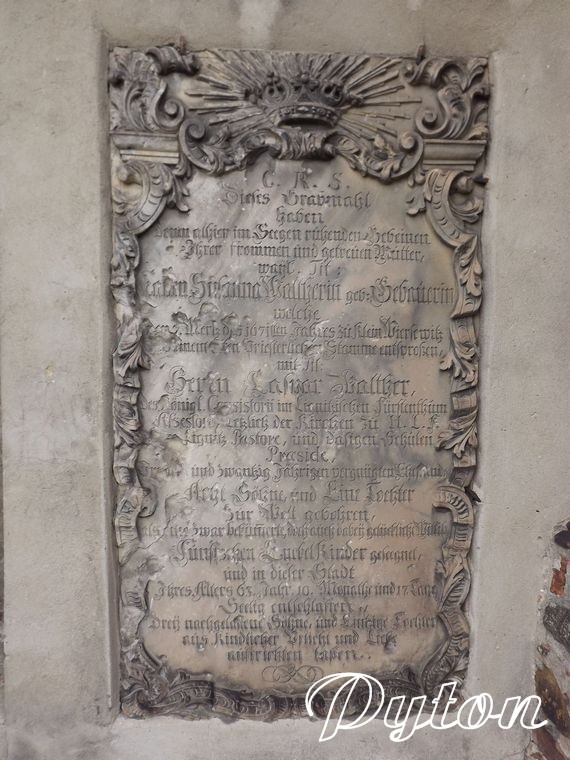 C. R. S.
Dieses Grabmahl
haben
denen alhier im Seegen ruhenden Gebeinen
Ihrer frommen und getreuen Mutter,
weyl. Tit:
Susanna Waltherin geb: Gebauerin
welche
den Mertz des 1671sten Jahres zu Klein
einem Priesterlichen Stamme entsproßen,
mit Tit:
Herrn Caspar Walther,
des Königl. Consistorii im Lignitzischen Fürstenthum
Assessore, der Kirchen zu U. L. F.
in Lignitz Pastore, und dasigen Schulen
Præside,
und zwantzig Jährigen vergnügten
Acht Söhne, und Eine Tochter
zur Welt gebohren,
als
Fünffzehen Kinder gesegnet,
und in dieser Stadt
Ihres Alters 63. Jahr, 10. Monathe und 17. Tage
Seelig entschlaffen,
Drey nachgelaßene Söhne, und Eintzige Tochter
aus Kindlicher Pflicht und Liebe
aufrichten laßen.
Pyton